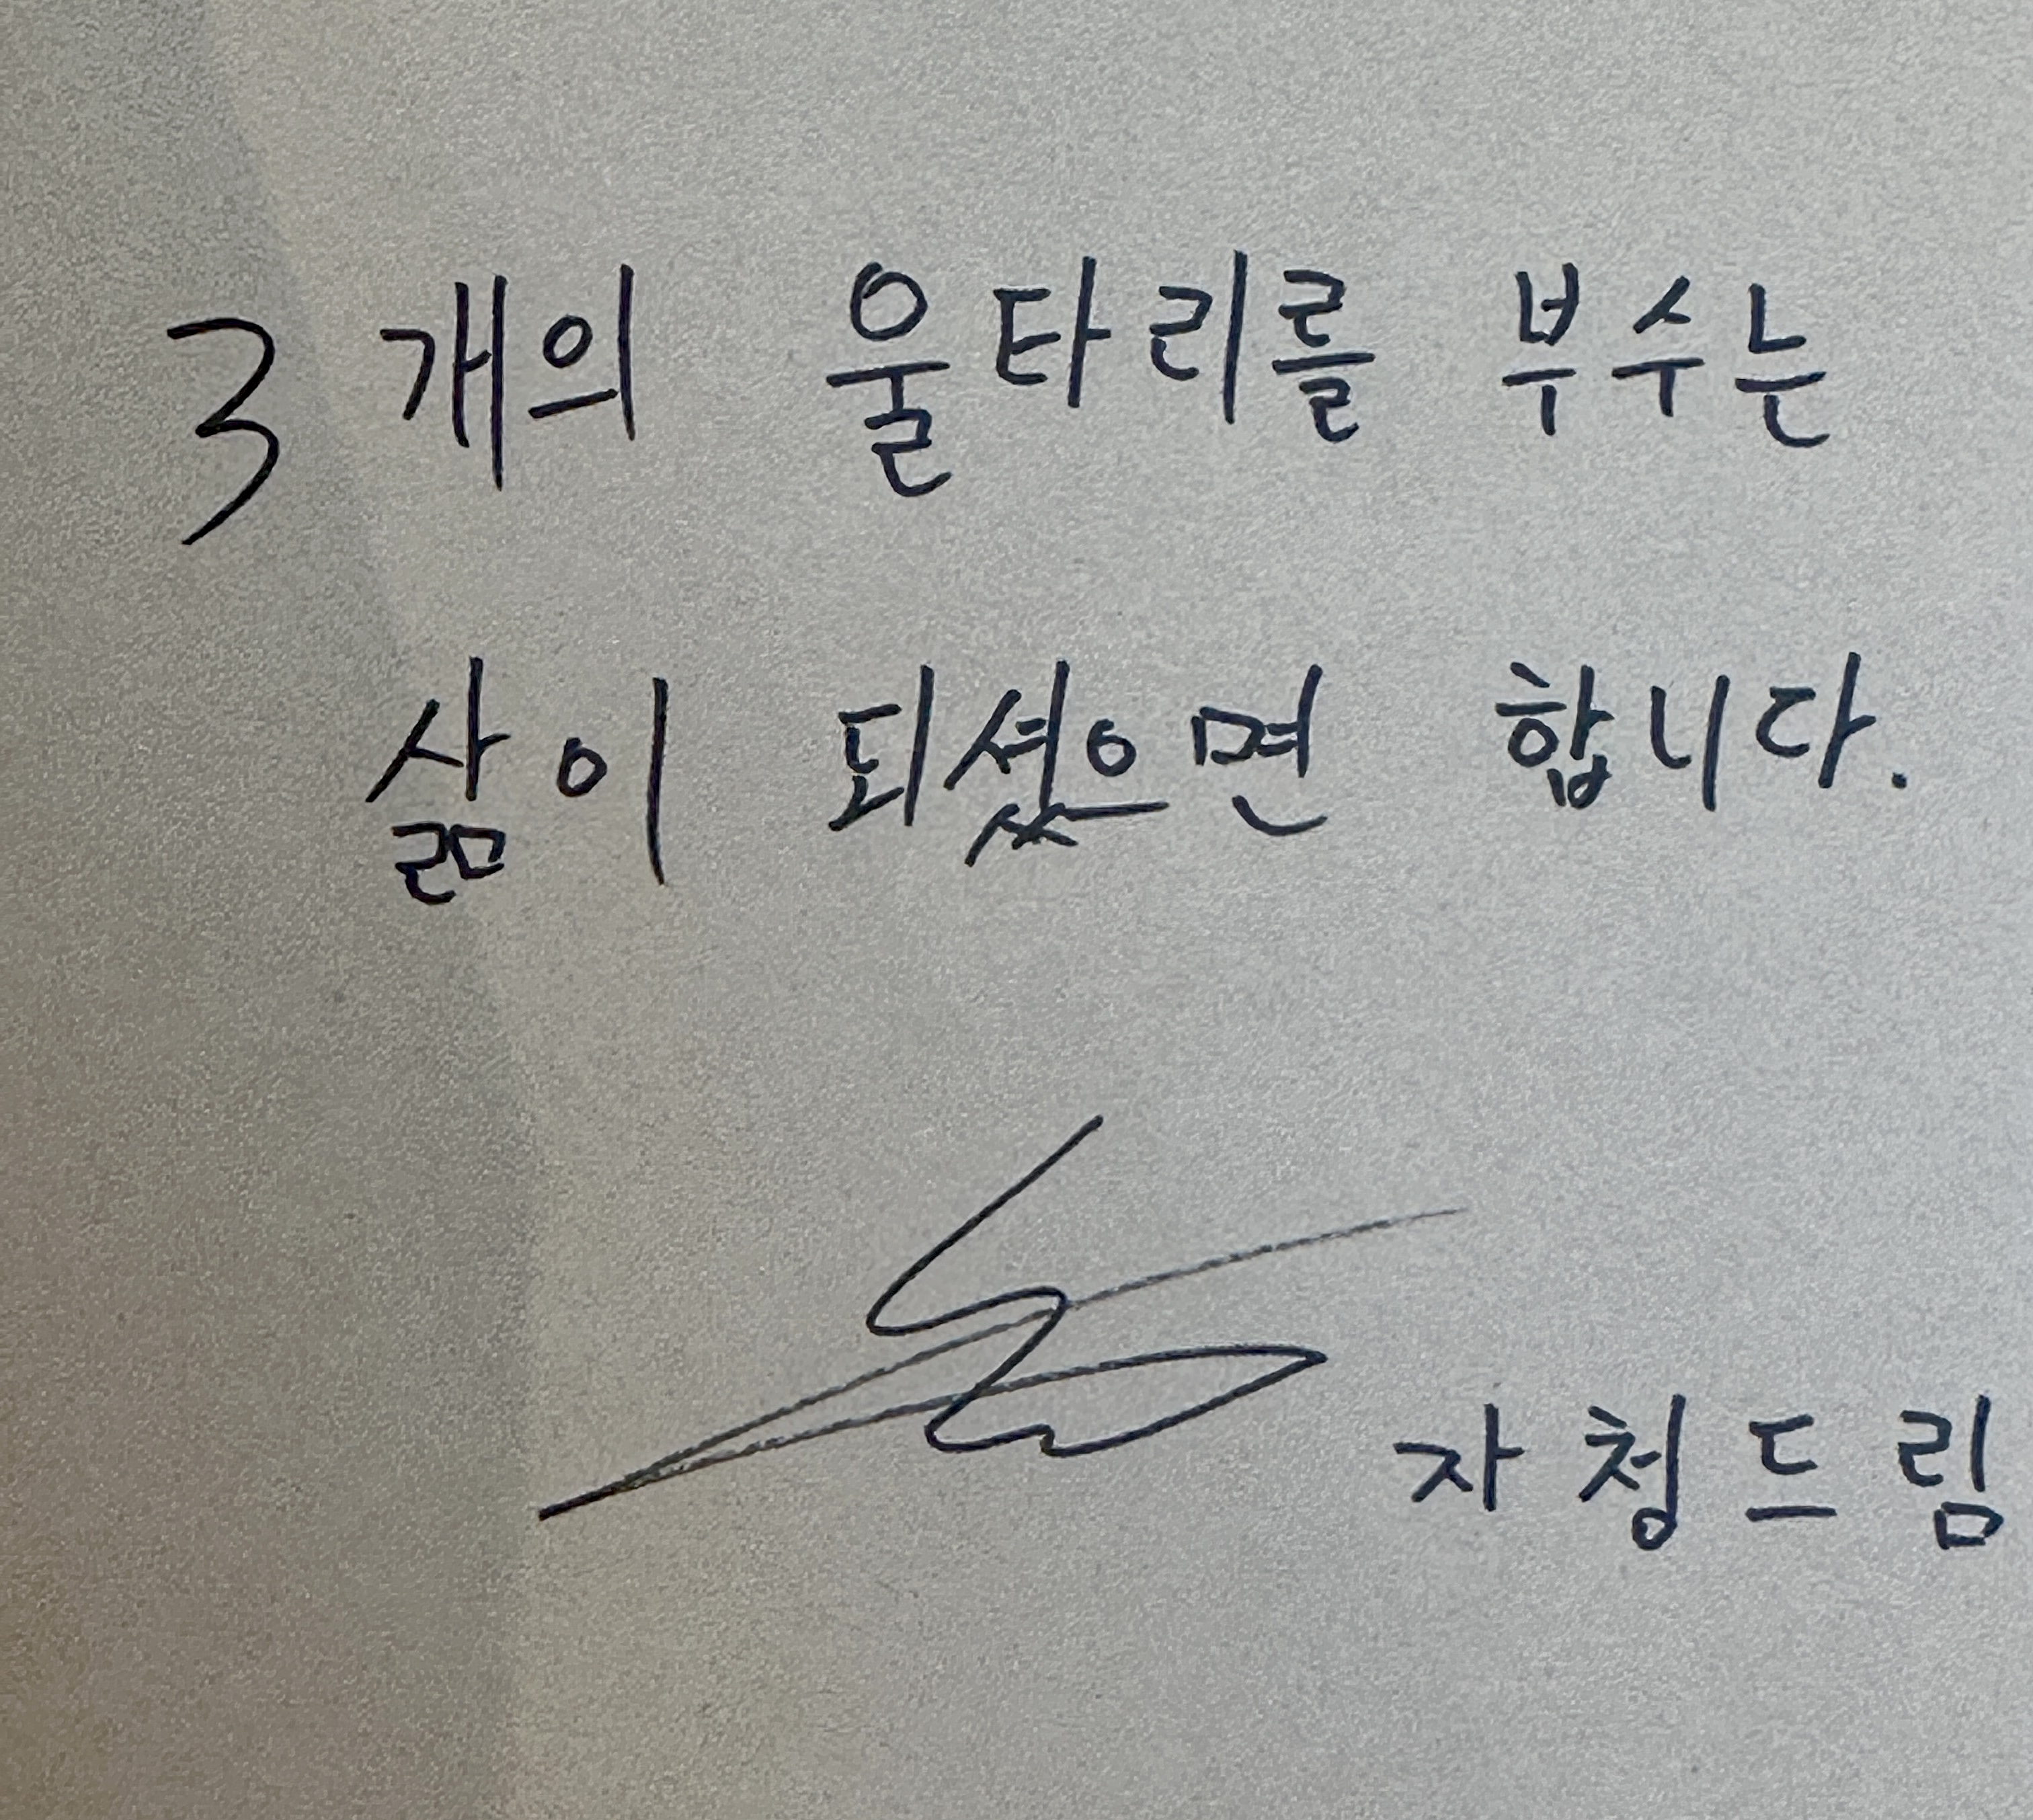 3개의 울타리를 부수는
삶이 되셨으면 합니다.
자청드림